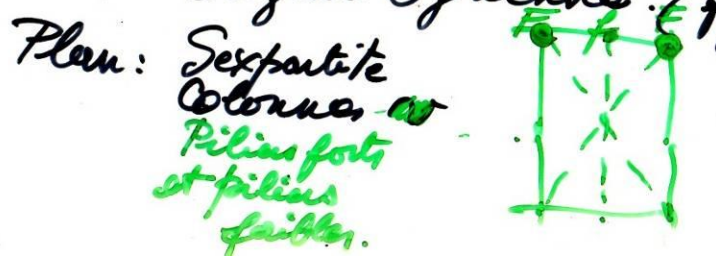 Plan: Sexpartite
Colonnes
Piliers forts
et piliers
faibles.
F f F